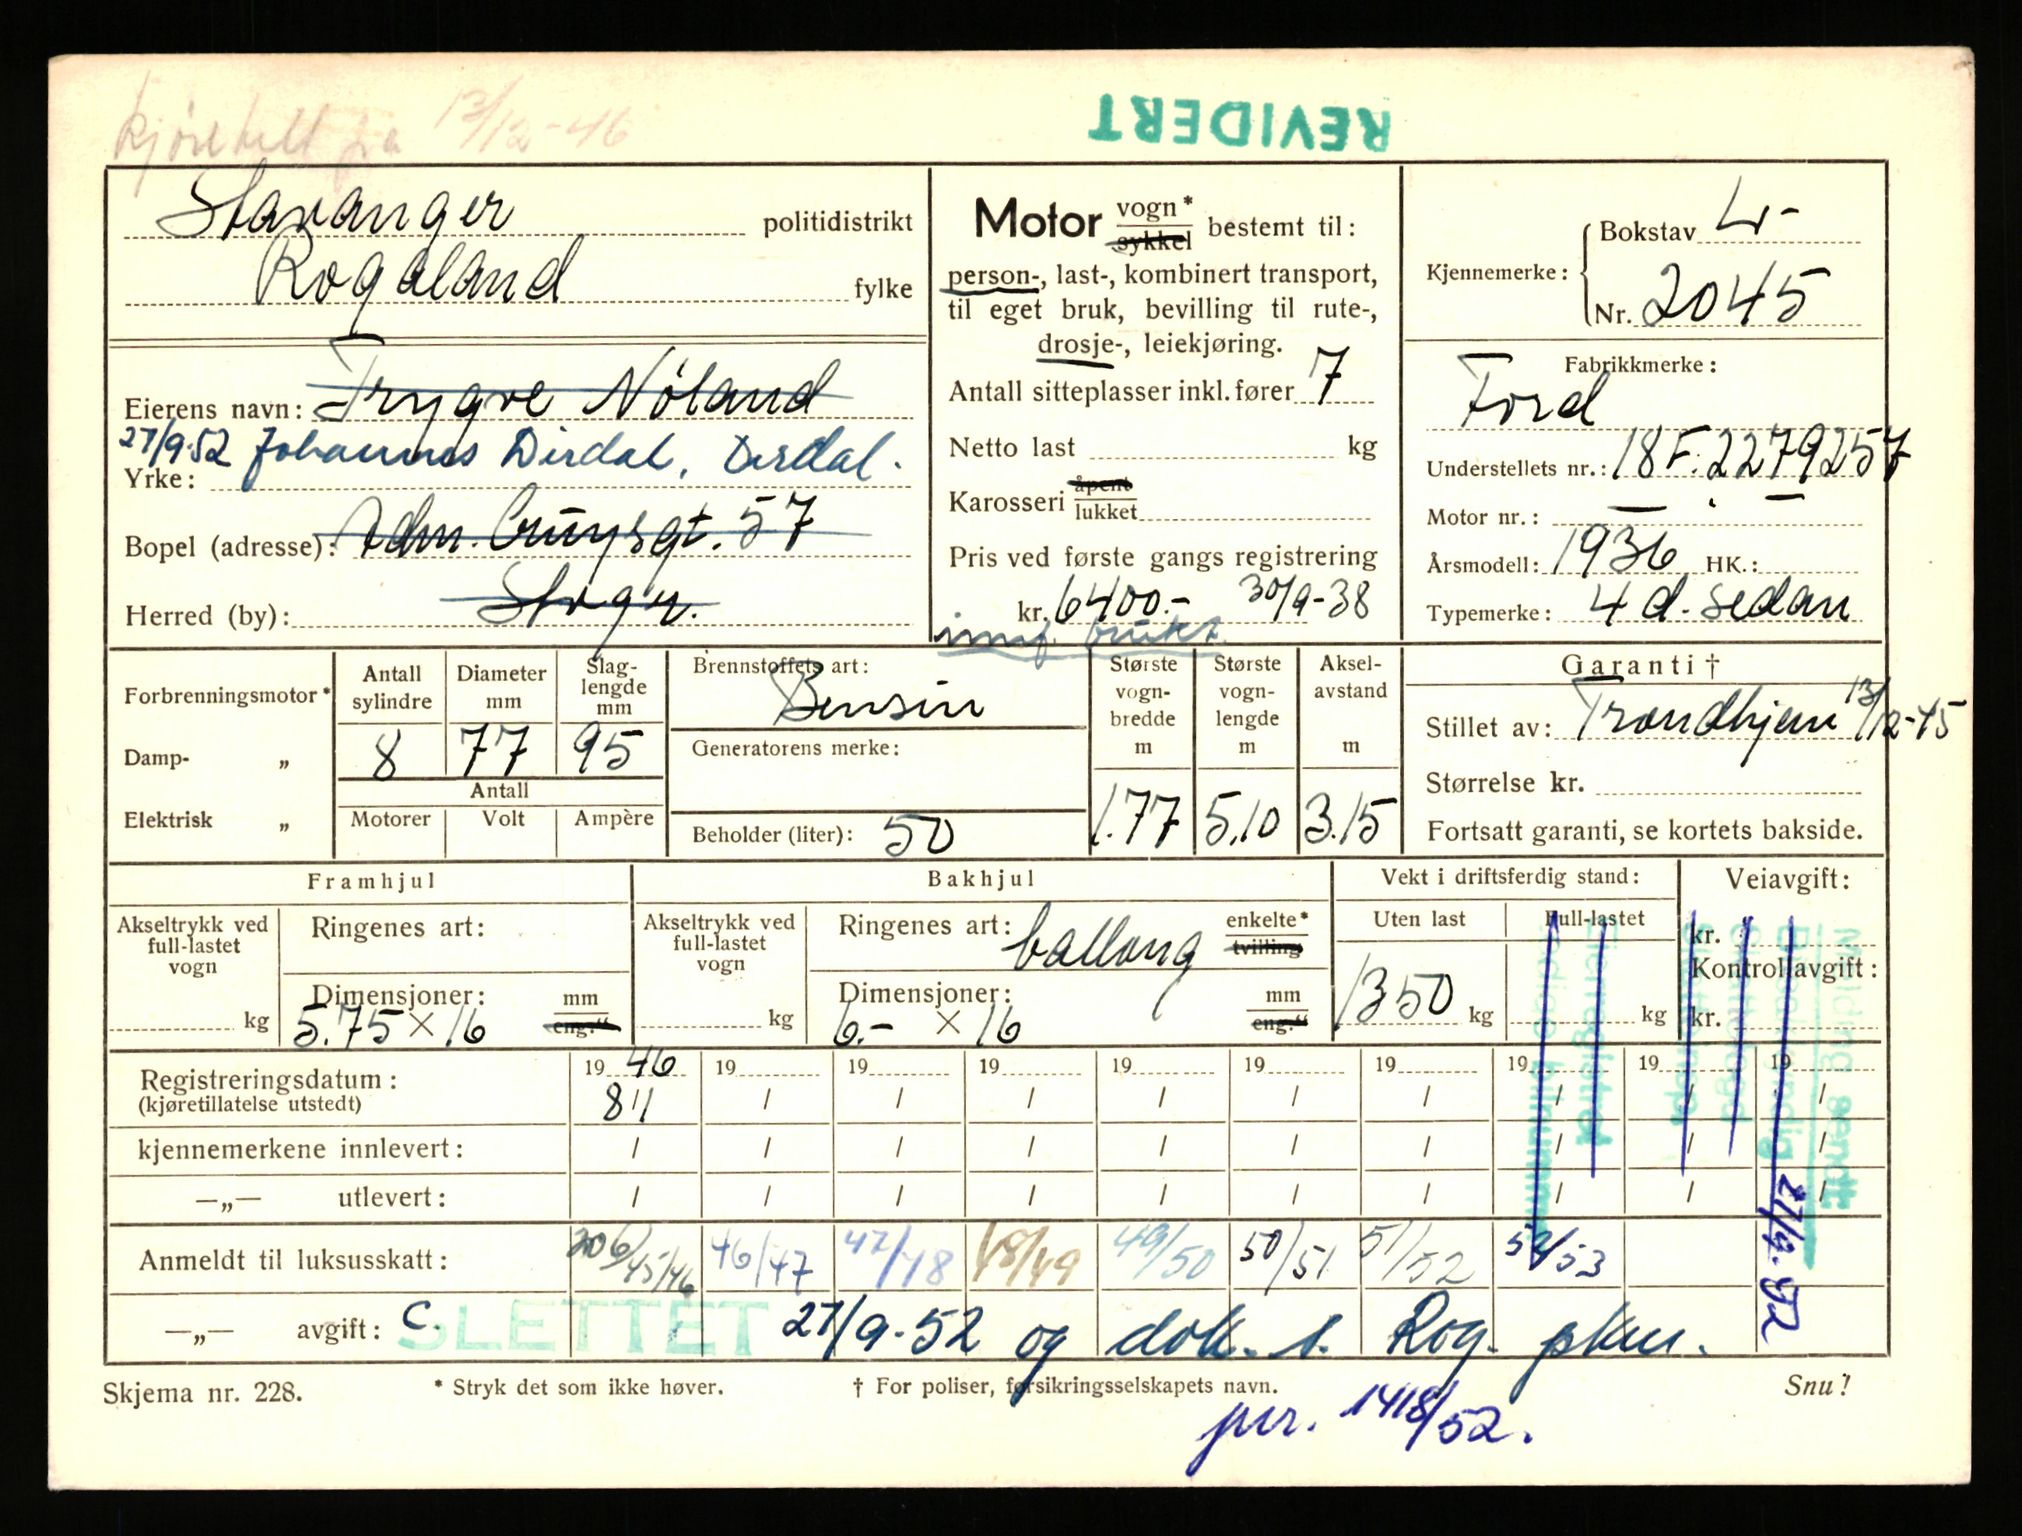 kjøretill fra 13/12-46
REVIDERT
Stavanger politidistrikt
Rogaland fylke
Eierens navn: Trygve Nöland
27/9.52 Johannes Dirdal, Dirdal.
Yrke:
Bopel (adresse): Adm. Cruysgt. 57
Herred (by): Stvgr.
Motor vogn* sykkel bestemt til:
person-, last-, kombinert transport,
til eget bruk, bevilling til rute-,
drosje-, leiekjøring.
Antall sitteplasser inkl. fører 7
Netto last kg
Karosseri åpent lukket
Pris ved første gangs registrering
kr. 6400.- 30/9-38
innf. brukt
Kjennemerke: Bokstav L-
Nr. 2045
Fabrikkmerke:
Ford
Understellets nr.: 18F.2279257
Motor nr.: — „ —
Årsmodell: 1936 HK.:
Typemerke: 4 d. sedan
Forbrenningsmotor*
Damp- „
Elektrisk „
Antall sylindre
8
Diameter mm
77
Slag-
lengde
mm
95
Antall
Motorer Volt Ampère
Brennstoffets art:
Bensin
Generatorens merke:
Beholder (liter): 50
Største vogn-bredde m
1.77
Største vogn-lengde m
5.10
Aksel-avstand m
3.15
Garanti †
Stillet av: Trondhjem 13/12-45
Størrelse kr.
Fortsatt garanti, se kortets bakside.
Framhjul
Akseltrykk ved
full-lastet
vogn
kg
Ringenes art:
Dimensjoner: mm eng.“
5.75 × 16
Bakhjul
Akseltrykk ved
full-lastet
vogn
kg
Ringenes art: ballong enkelte* tvilling
Dimensjoner: mm eng.“
6.- × 16
Vekt i driftsferdig stand:
Uten last Full-lastet
1350 kg kg
Veiavgift:
kr.
Kontrollavgift:
kr.
Melding sendt
27/9.52
Registreringsdatum: 19 46 19 19 19 19 19 19 19 19 19
(kjøretillatelse utstedt) 8/1 / / / / / / / / /
kjennemerkene innlevert: / / / / / / / / / /
—„— utlevert: / / / / / / / / / /
Anmeldt til luksusskatt: 45/46 46/47 47/48 48/49 49/50 50/51 51/52 52/53
—„— avgift: C. SLETTET 27/9.52 og dok. s. Rog. pkm.
Skjema nr. 228. * Stryk det som ikke høver. † For poliser, forsikringsselskapets navn. Snu!
jnr. 1418/52.